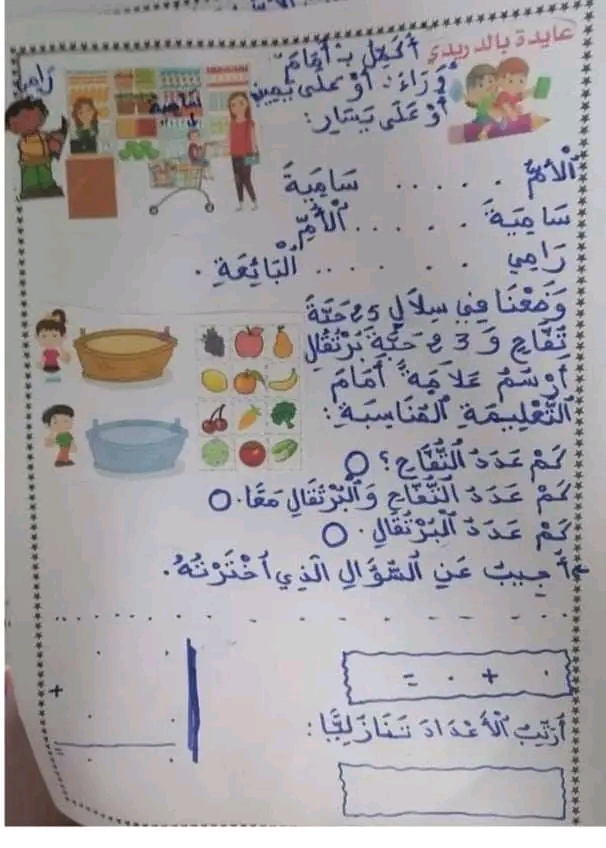 عايدة بالدريدي
أُكْمِلُ بـ: أَمَامَ
وَرَاءَ: أَوْ عَلَى يَمِينِ
أَوْ عَلَى يَسَارِ:
رَامِي
سَامِيَة
اَلْأُمُّ . . . . . سَامِيَةَ
سَامِيَةُ . . . . . اَلْأُمِّ
رَامِي . . . . . اَلْبَائِعَةِ .
وَضَعْنَا فِي سِلَالٍ 5 و حَبَّةَ
تُفَّاحٍ وَ 3 و حَبَّةِ بُرْتُقَالٍ
أَرْسُمُ عَلَامَةً أَمَامَ
اَلتَّعْلِيمَةِ اَلْمُنَاسِبَةِ:
كَمْ عَدَدُ اَلتُّفَّاحِ؟
كَمْ عَدَدُ اَلتُّفَّاحِ وَاَلْبُرْتُقَالِ مَعًا.
كَمْ عَدَدُ اَلْبُرْتُقَالِ.
أُجِيبُ عَنِ اَلسُّؤَالِ اَلَّذِي اَخْتَرْتُهُ.
. + . =
+
أُرَتِّبُ اَلْأَعْدَادَ تَنَازُلِيًّا: